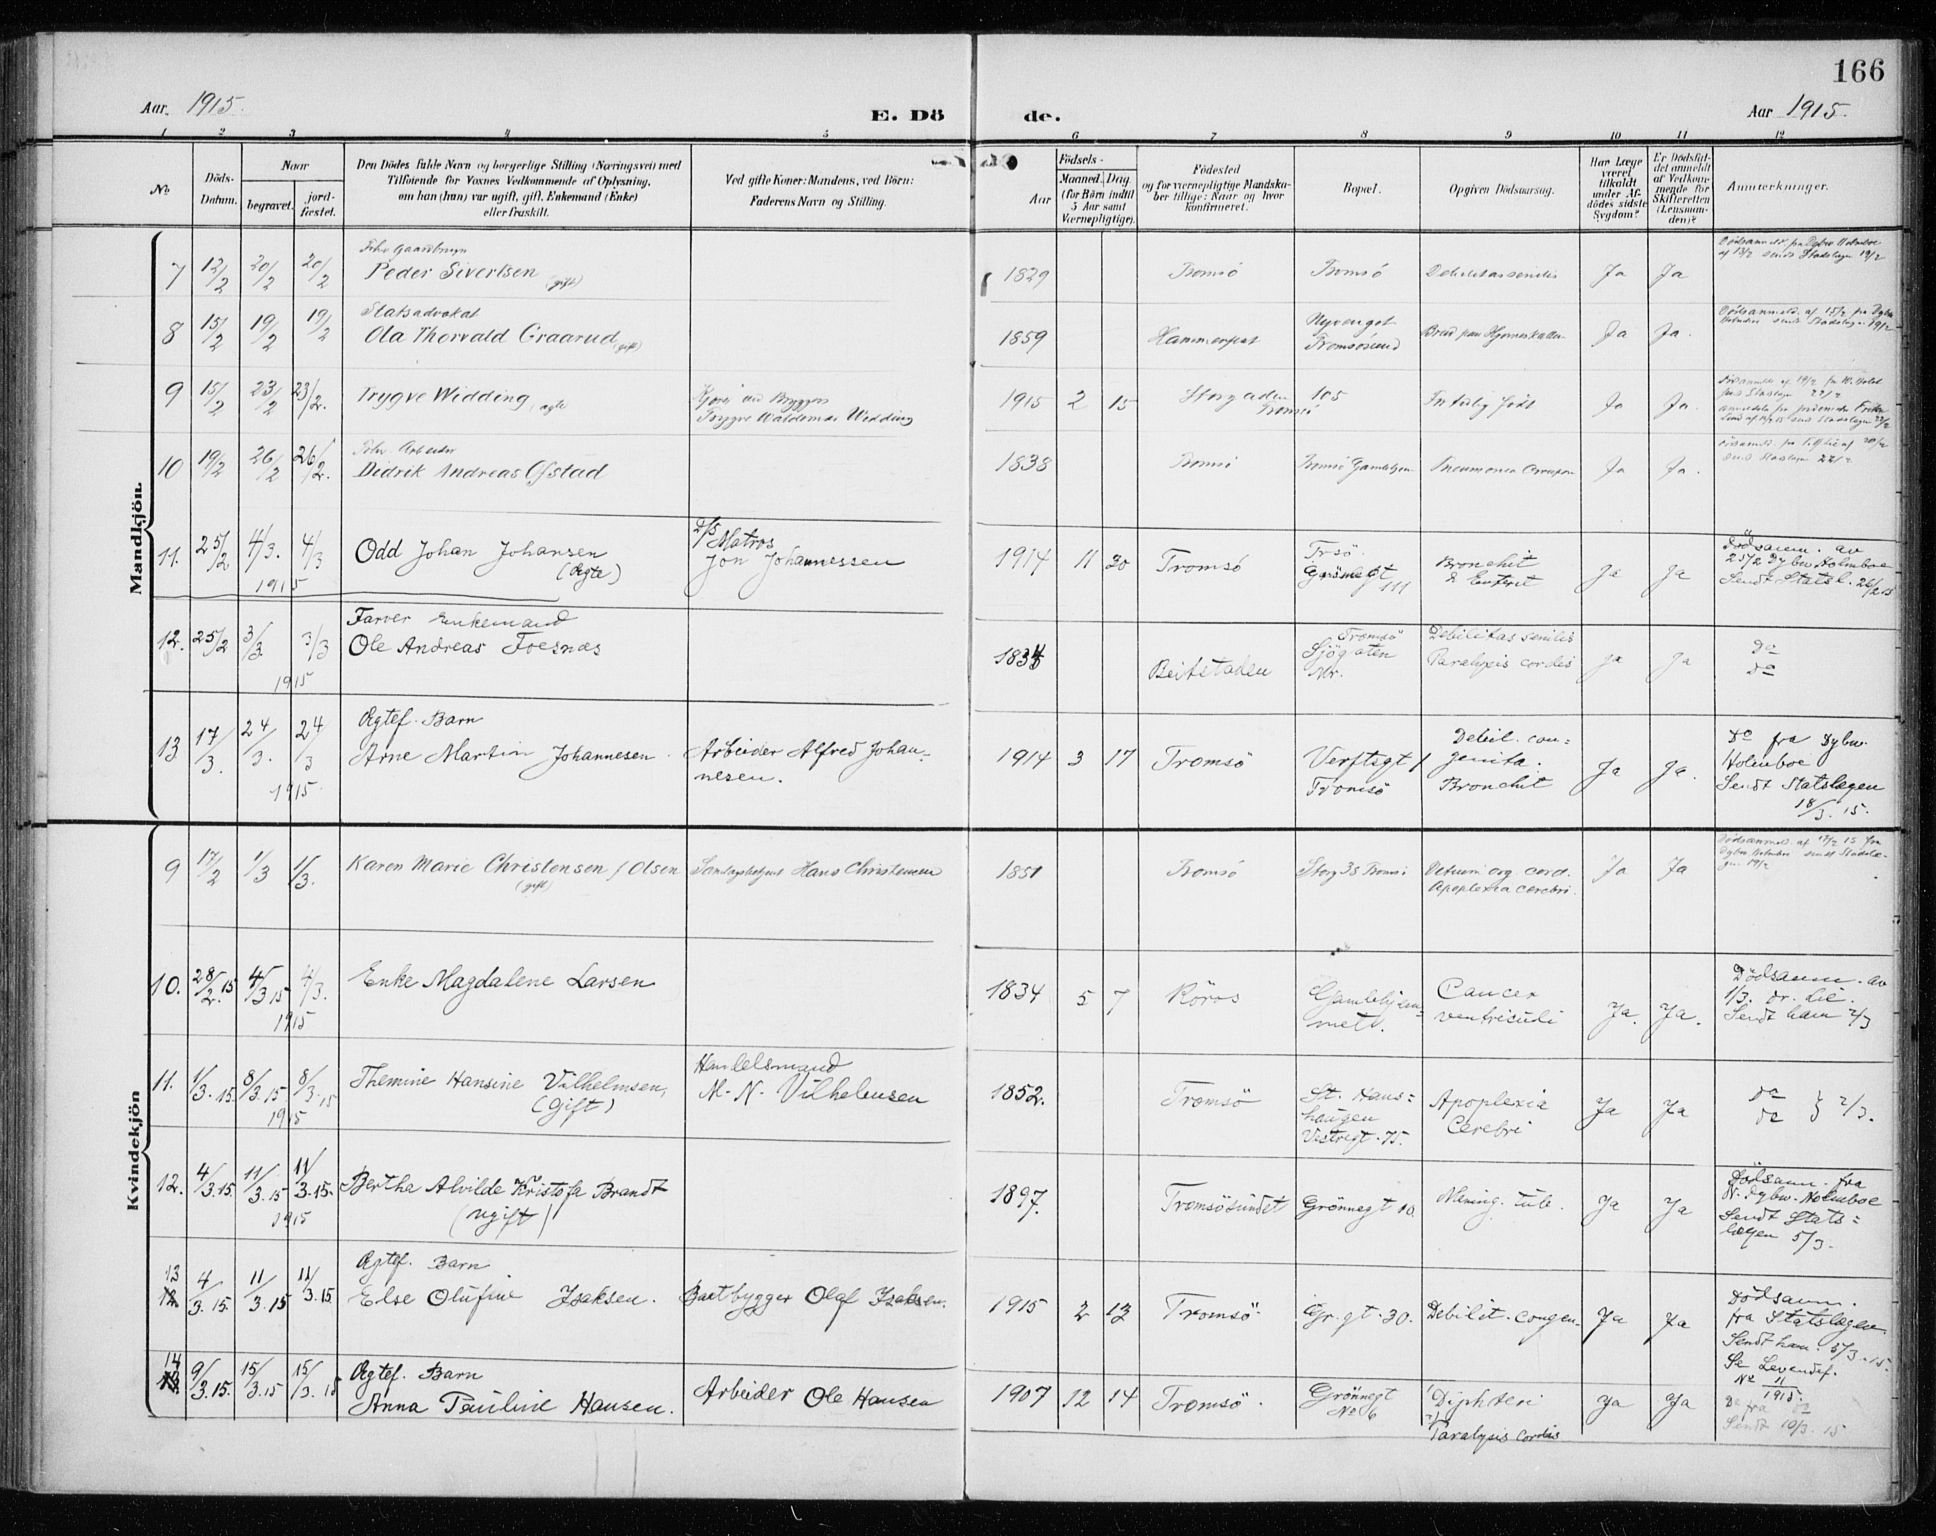 166
Aar. 1915.
E. Dö de.
Aar 1915.
1 2 3 4 5 6 7 8 9 10 11 12
No
Döds-Datum.
Naar
begravet.
jord-fæstet.
Den Dödes fulde Navn og borgerlige Stilling (Næringsvei) med
Tilföiende for Voxnes Vedkommende af Oplysning,
om han (hun) var ugift, gift, Enkemand (Enke)
eller fraskilt.
Ved gifte Koner: Mandens, ved Börn:
Faderens Navn og Stilling.
Födsels-
Aar
Maaned. Dag.
(for Börn indtil
5 Aar samt
Værnepligtige).
Födested
og for værnepligtige Mandska-
ber tillige: Naar og hvor
konfirmeret.
Bopæl.
Opgiven Dödsaarsag.
Har Læge
været
tilkaldt
under Af-
dödes sidste
Sygdom?
Er Dödsfal-
det anmeldt
af Vedkom-
mende for
Skifteretten
(Lensman-
den)?
Anmerkninger.
Mandkjön.
7 12/2 20/2 20/2 Peder Sivertsen (gift) 1829 Tromsö Tromsö Debilitas senilis Ja Ja
8 15/2 19/2 19/2 Statsadvokat
Ola Thorvald Graarud (gift) 1859 Hammerfest Tromsösund Ja Ja.
9 15/2 23/2 23/2. Trygve Widding ægte Trygve Waldemar Widding 1915 2 15 Storgaden 105 Tromsö For tidlig födt Ja Ja.
10 19/2 26/2 26/2. Arbeider
Didrik Andreas Ofstad 1838 Tromsö Pneumonia Ja Ja.
11. 25/2 4/3. 4/3 1915 Odd Johan Johansen (Ægte) Matros
Jon Johannessen 1914 11 20 Tromsö Trsö.
Grönnegt 111 Bronchit
& Enterit Ja Ja Dödsanm. av
25/2 Dybw Holmboe
Sendt Statsl. 26/2 15
12. 25/2 3/3. 3/3 1915 Farver Enkemand
Ole Andreas Foesnæs 1834 Beitstaden Tromsö
Sjögaten
Nr. Debilitas senilis
Paralysis cordis Ja Ja Do
do
13 17/3. 24/3. 24/3 1915. Ægtef. Barn
Arne Martin Johannesen. Arbeider Alfred Johan-
nesen. 1914 3 17 Tromsö Verftsgt 1
Tromsö Debil. con=
genita.
Bronchit Ja Ja. Do fra Dybw.
Holmboe
Sendt Statslægen
18/3. 15.
Kvindekjön
9 17/2 1/3 1/3. Karen Marie Christensen f Olsen (gift) Hans Christensen 1851 Tromsö Storg 38 Tromsö org. cord.
Apoplexia cerebri. Ja Ja
10. 28/2. 15 4/3 15 4/3. 1915 Enke Magdalene Larsen 1834 5 7 Röros Gamlehjem-
met. Cancer
ventriculi Ja. Ja. Dödsanm. av
1/3. dr. Lie.
Sendt ham 2/3
11. 1/3. 15. 8/3. 15 8/3. 15 1915 Themine Hansine Vilhelmsen, (gift) Handelsmand
M. N. Vilhelmsen 1852. Tromsö St. Hans=
haugen
Vestregt. 75. Apoplexia
Cerebri Ja Ja do
do } 2/3.
12. 4/3. 15. 11/3. 15 11/3. 15. 1915 Bertha Alvilde Kristofa Brandt (ugift) 1897. Tromsösundet Grönnegt 10. Mening. tub. Ja Ja Dödsanm. fra
N. Dybw. Holmboe
Sendt Stats=
lægen 5/3.
13 4/3. 15. 11/3. 15 11/3. 15. Ægtef. Barn
Else Olufine Isaksen. Baatbygger Olaf Isaksen. 1915 2 13 Tromsö. Gr. gt. 30. Debilit. congen. Ja Ja Dödsanm.
fra Statslægen.
Sendt ham. 5/3. 15.
Se Levendef.
No 11
1915.
14 9/3. 15. 15/3. 15 15/3. 15 Ægtef. Barn
Anna Pauline Hansen. Arbeider Ole Hansen 1907 12 14 Tromsö. Grönnegt
No 6 Diphteri
Paralysis cordis Ja Ja Do fra do
Sendt 10/3. 15